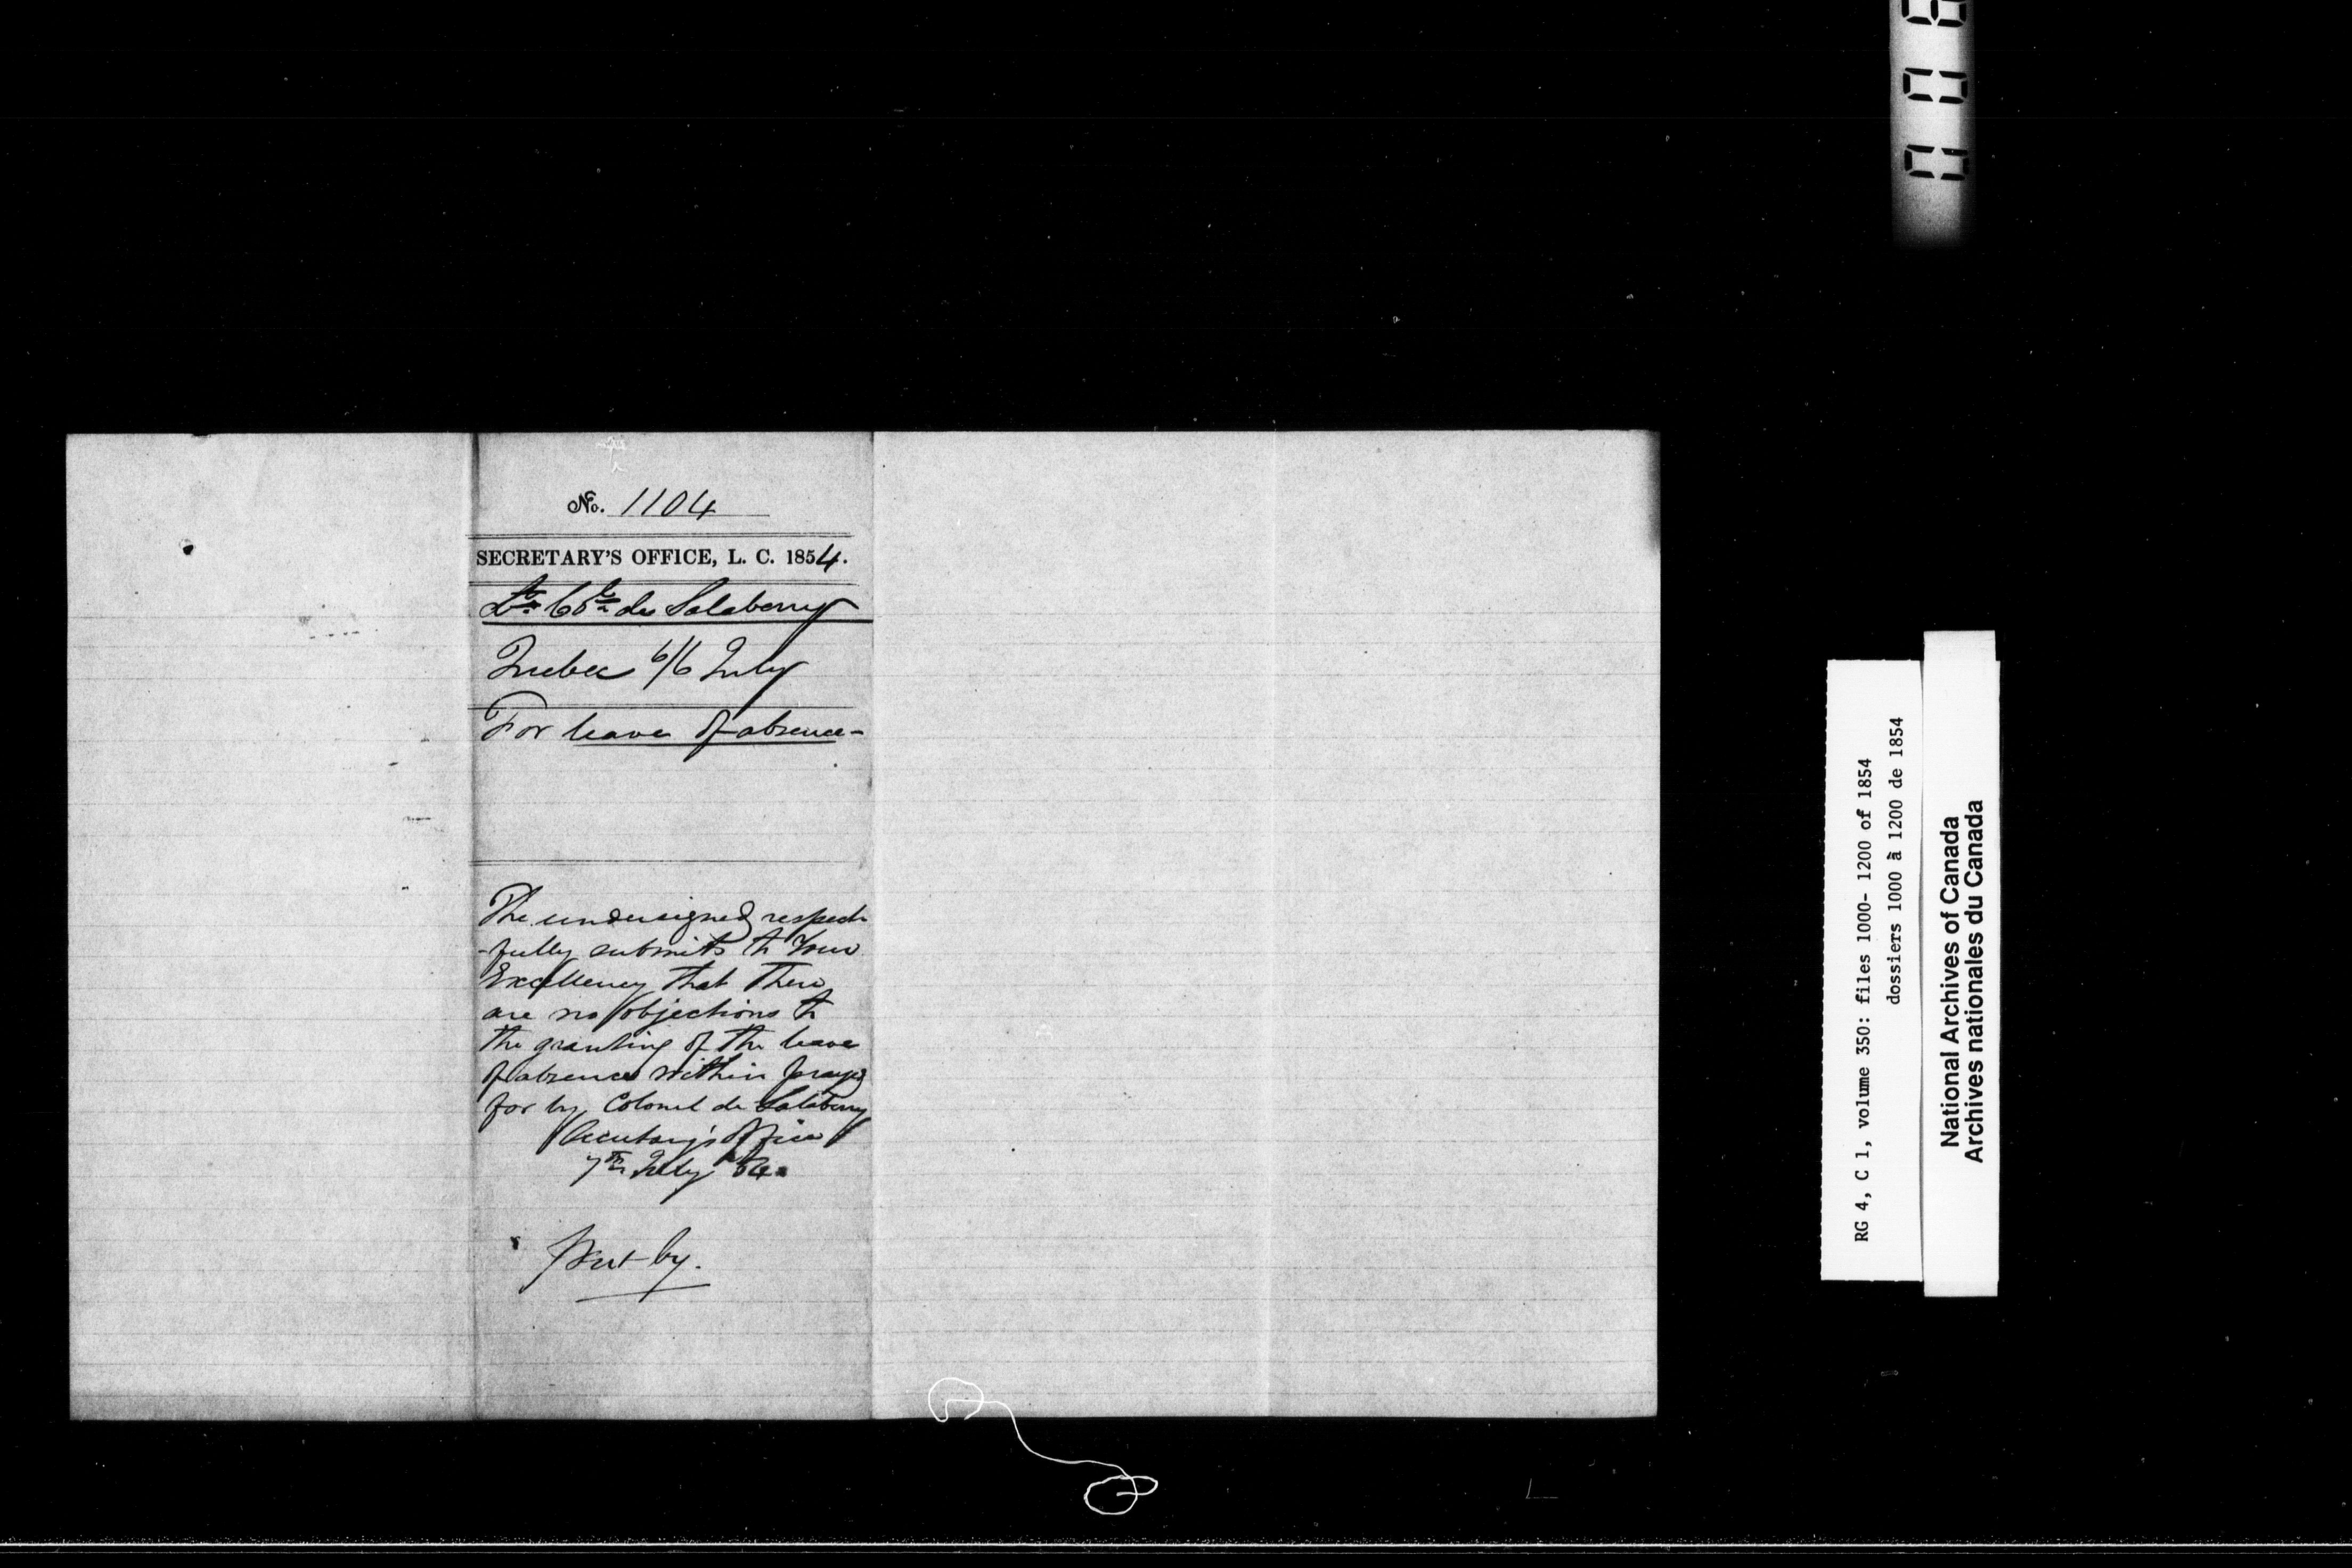 No. 1104
SECRETARY'S OFFICE, L. C. 1854.
Lt. Col. de Salaberry
Quebec 6/6 July
For leave of absence-
The undersigned respect
-fully submits to Your
Excellency that there
are no objections to
the granting of the leave
of absence within prayed
for by Colonel de Salaberry
Secretary's Office
7th July 54.
RG 4, C 1, volume 350: files 1000- 1200 of 1854
dossiers 1000 à 1200 de 1854
National Archives of Canada
Archives nationales du Canada